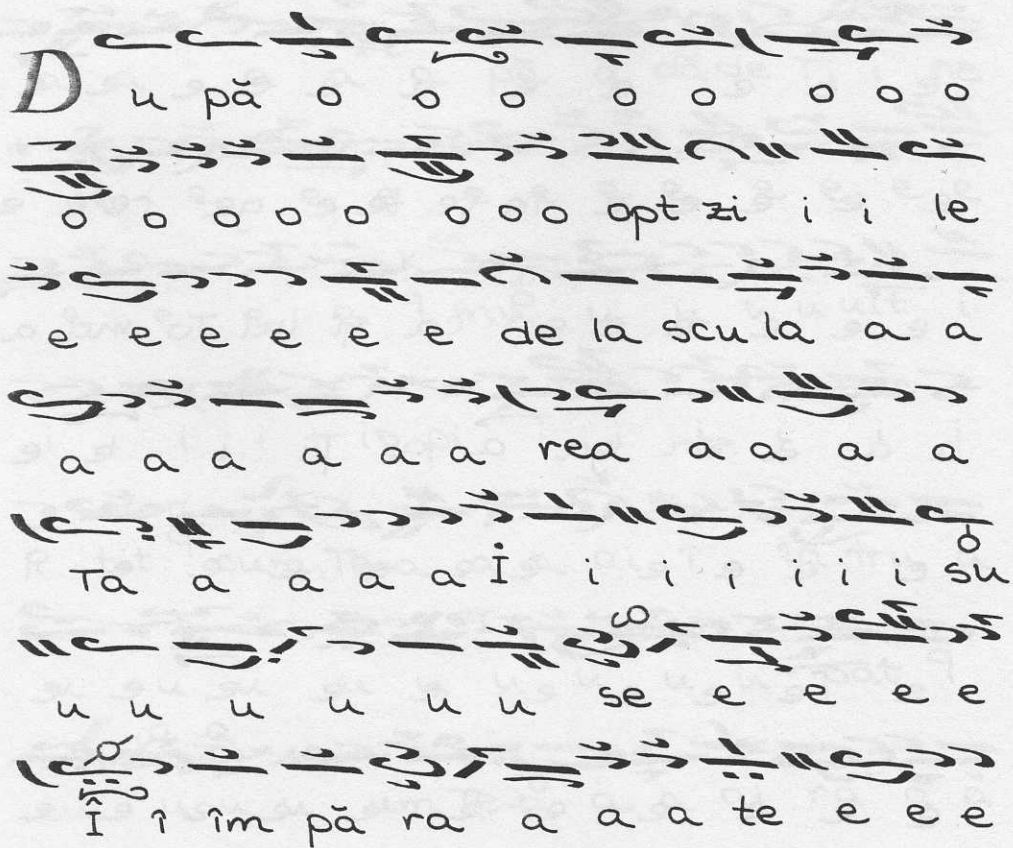 D u pă o o o o o o o o
o o o o o o o o opt zi i i le
e e e e e e de la scu la a a
a a a a a a rea a a a a
Ta a a a a İ i i i i i i su
u u u u u u se e e e e
Î î îm pă ra a a a te e e e